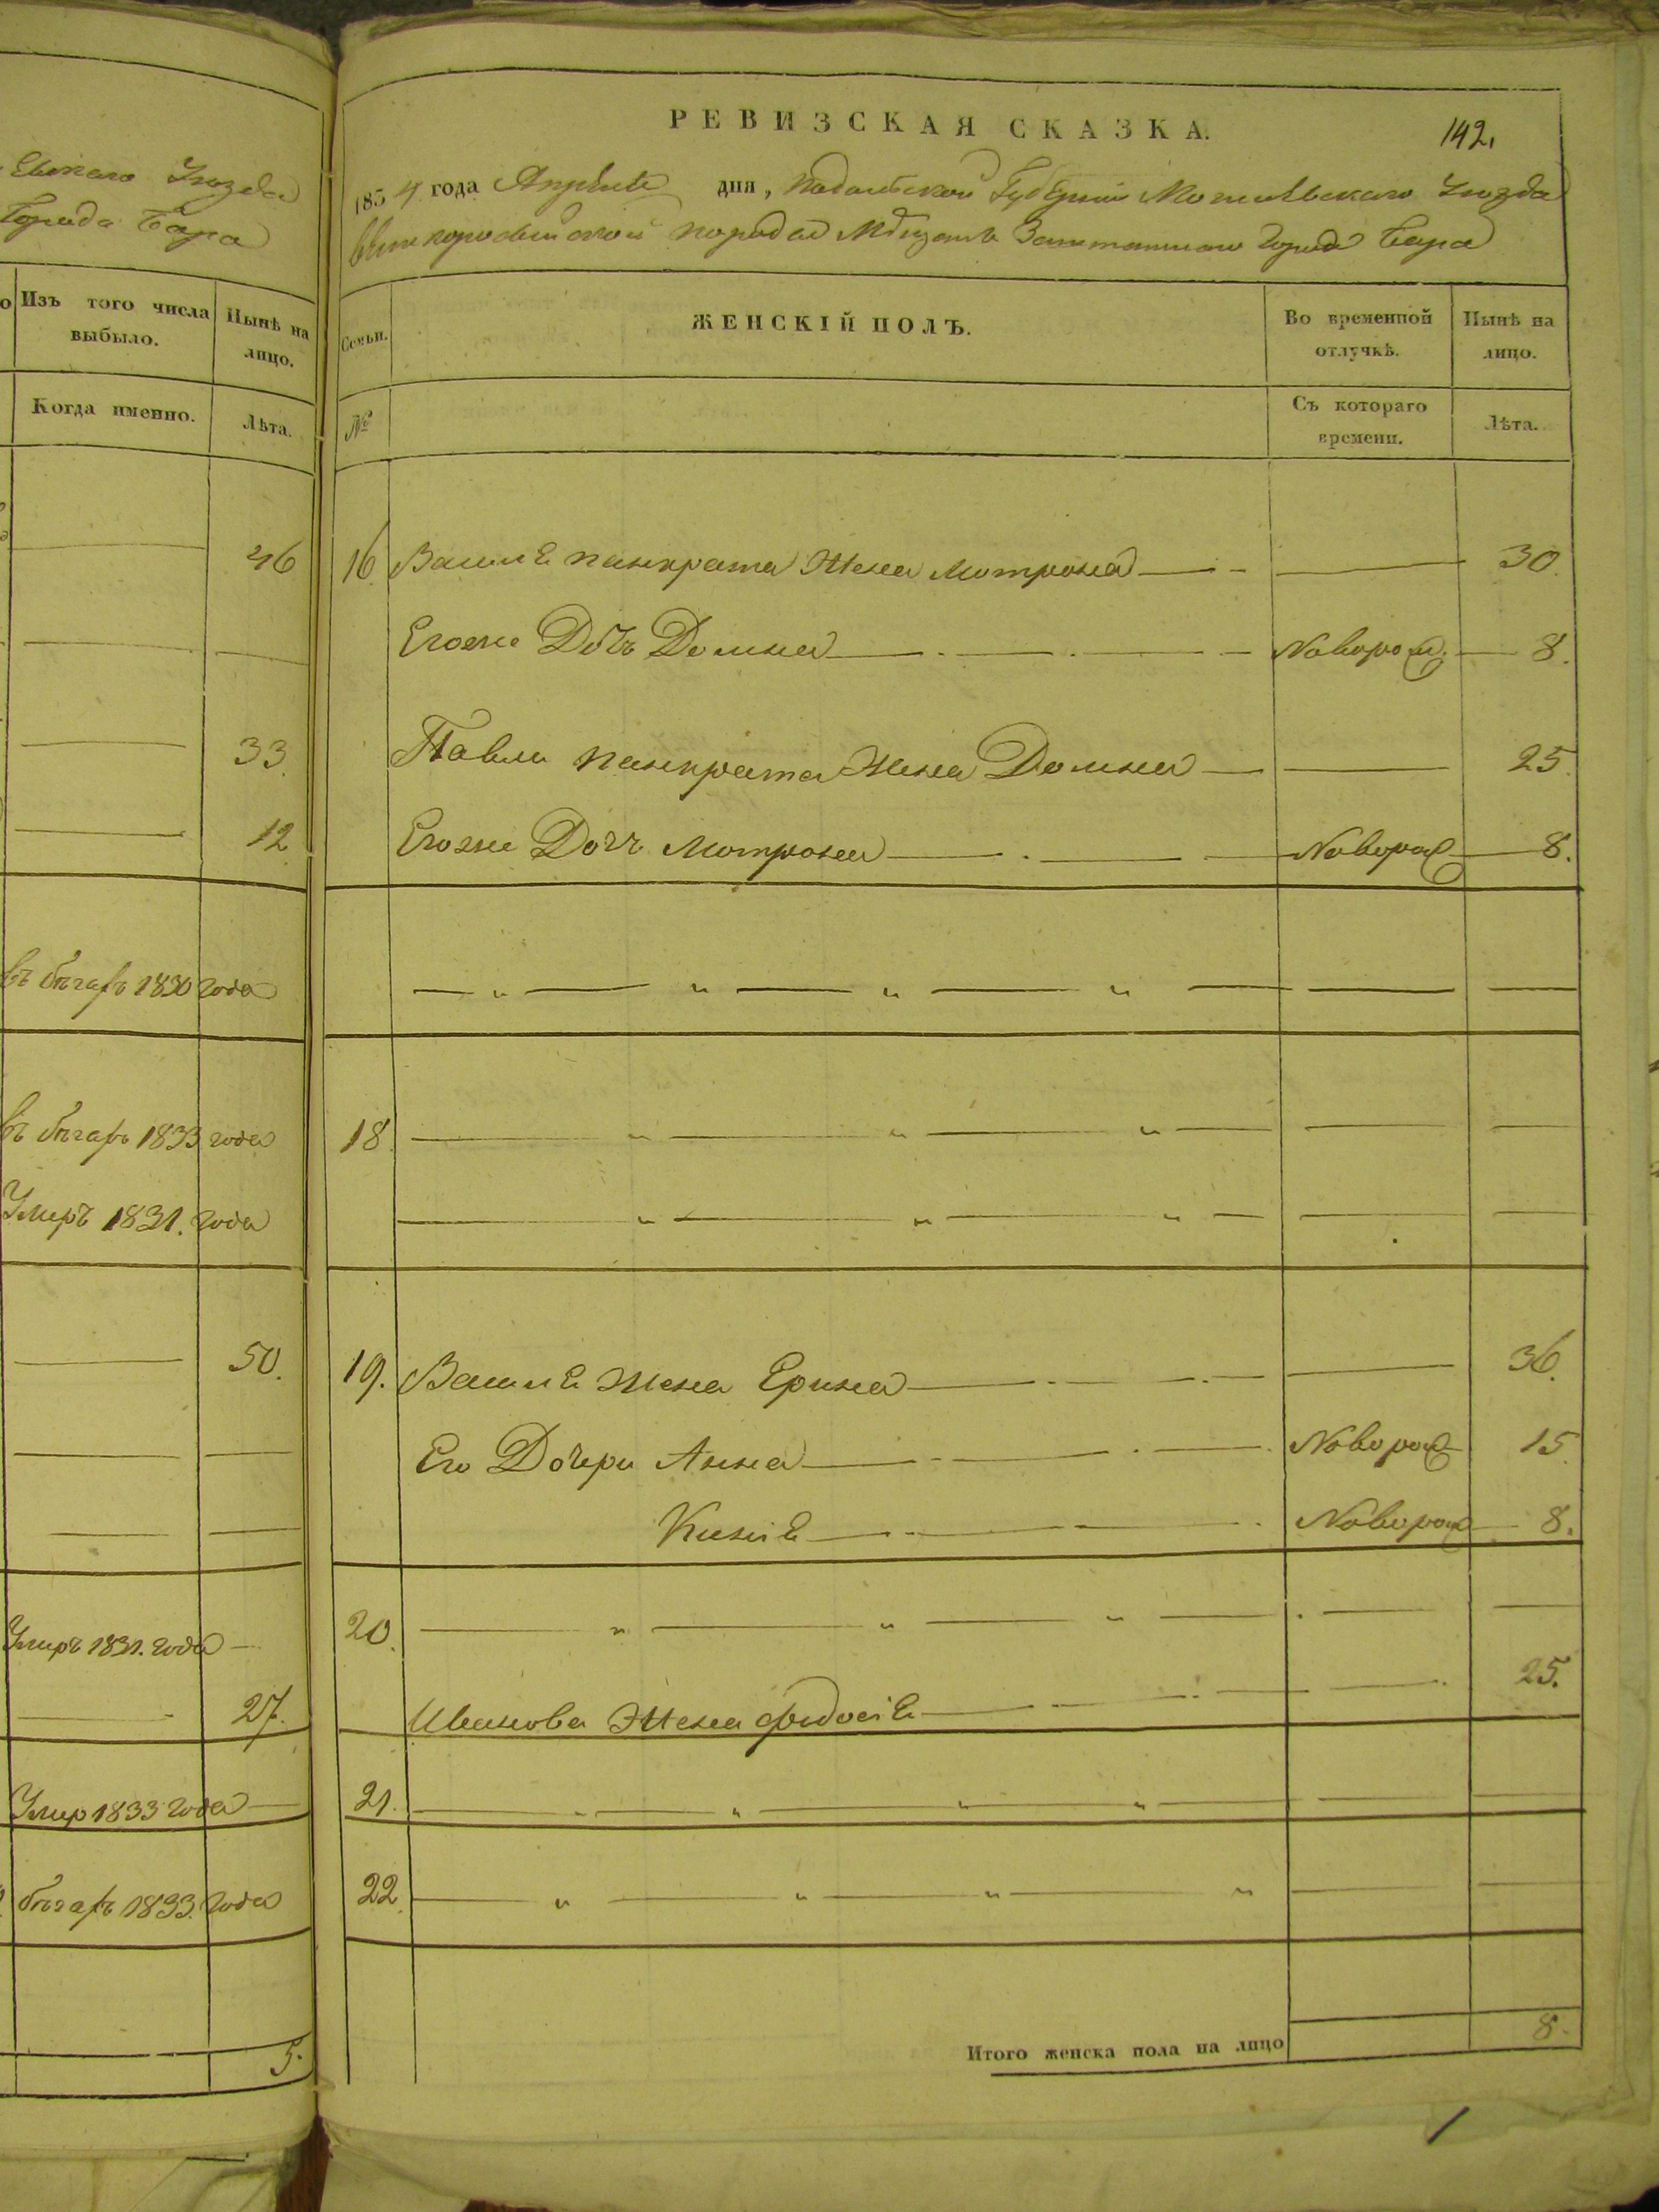 Уѣзда
Города Бара
Изъ того числа выбыло.
Нынѣ на лицо.
Когда именно.
Лѣта.
46
33.
12
въ бѣгахъ 1830 года
въ бѣгахъ 1833 года
Умеръ 1831. года
50.
Умеръ 1831. года
27.
Умер 1833 года
бѣгахъ 1833. года
5.
РЕВИЗСКАЯ СКАЗКА.
142.
1834 года Апреля дня, Подольской Губернии Могилевского Уезда
Мещанъ Заштатного Города Бара
Семьи.
ЖЕНСКІЙ ПОЛЪ.
Во временной отлучкѣ.
Нынѣ на лицо.
№
Съ котораго времени.
Лѣта.
16 Васили Панкрата Жена Мотрона 30.
Егоже Дочь Домна Новорож. 8.
Павла Панкрата Жена Домна 25.
Егоже Дочь Мотрона Новорож 8.
18
19. Васили Жена Ерина 36.
Его Дочери Анна Новорож 15
8.
20.
Иванова Жена Федосіе 25.
21.
22.
Итого женска пола на лицо 8.